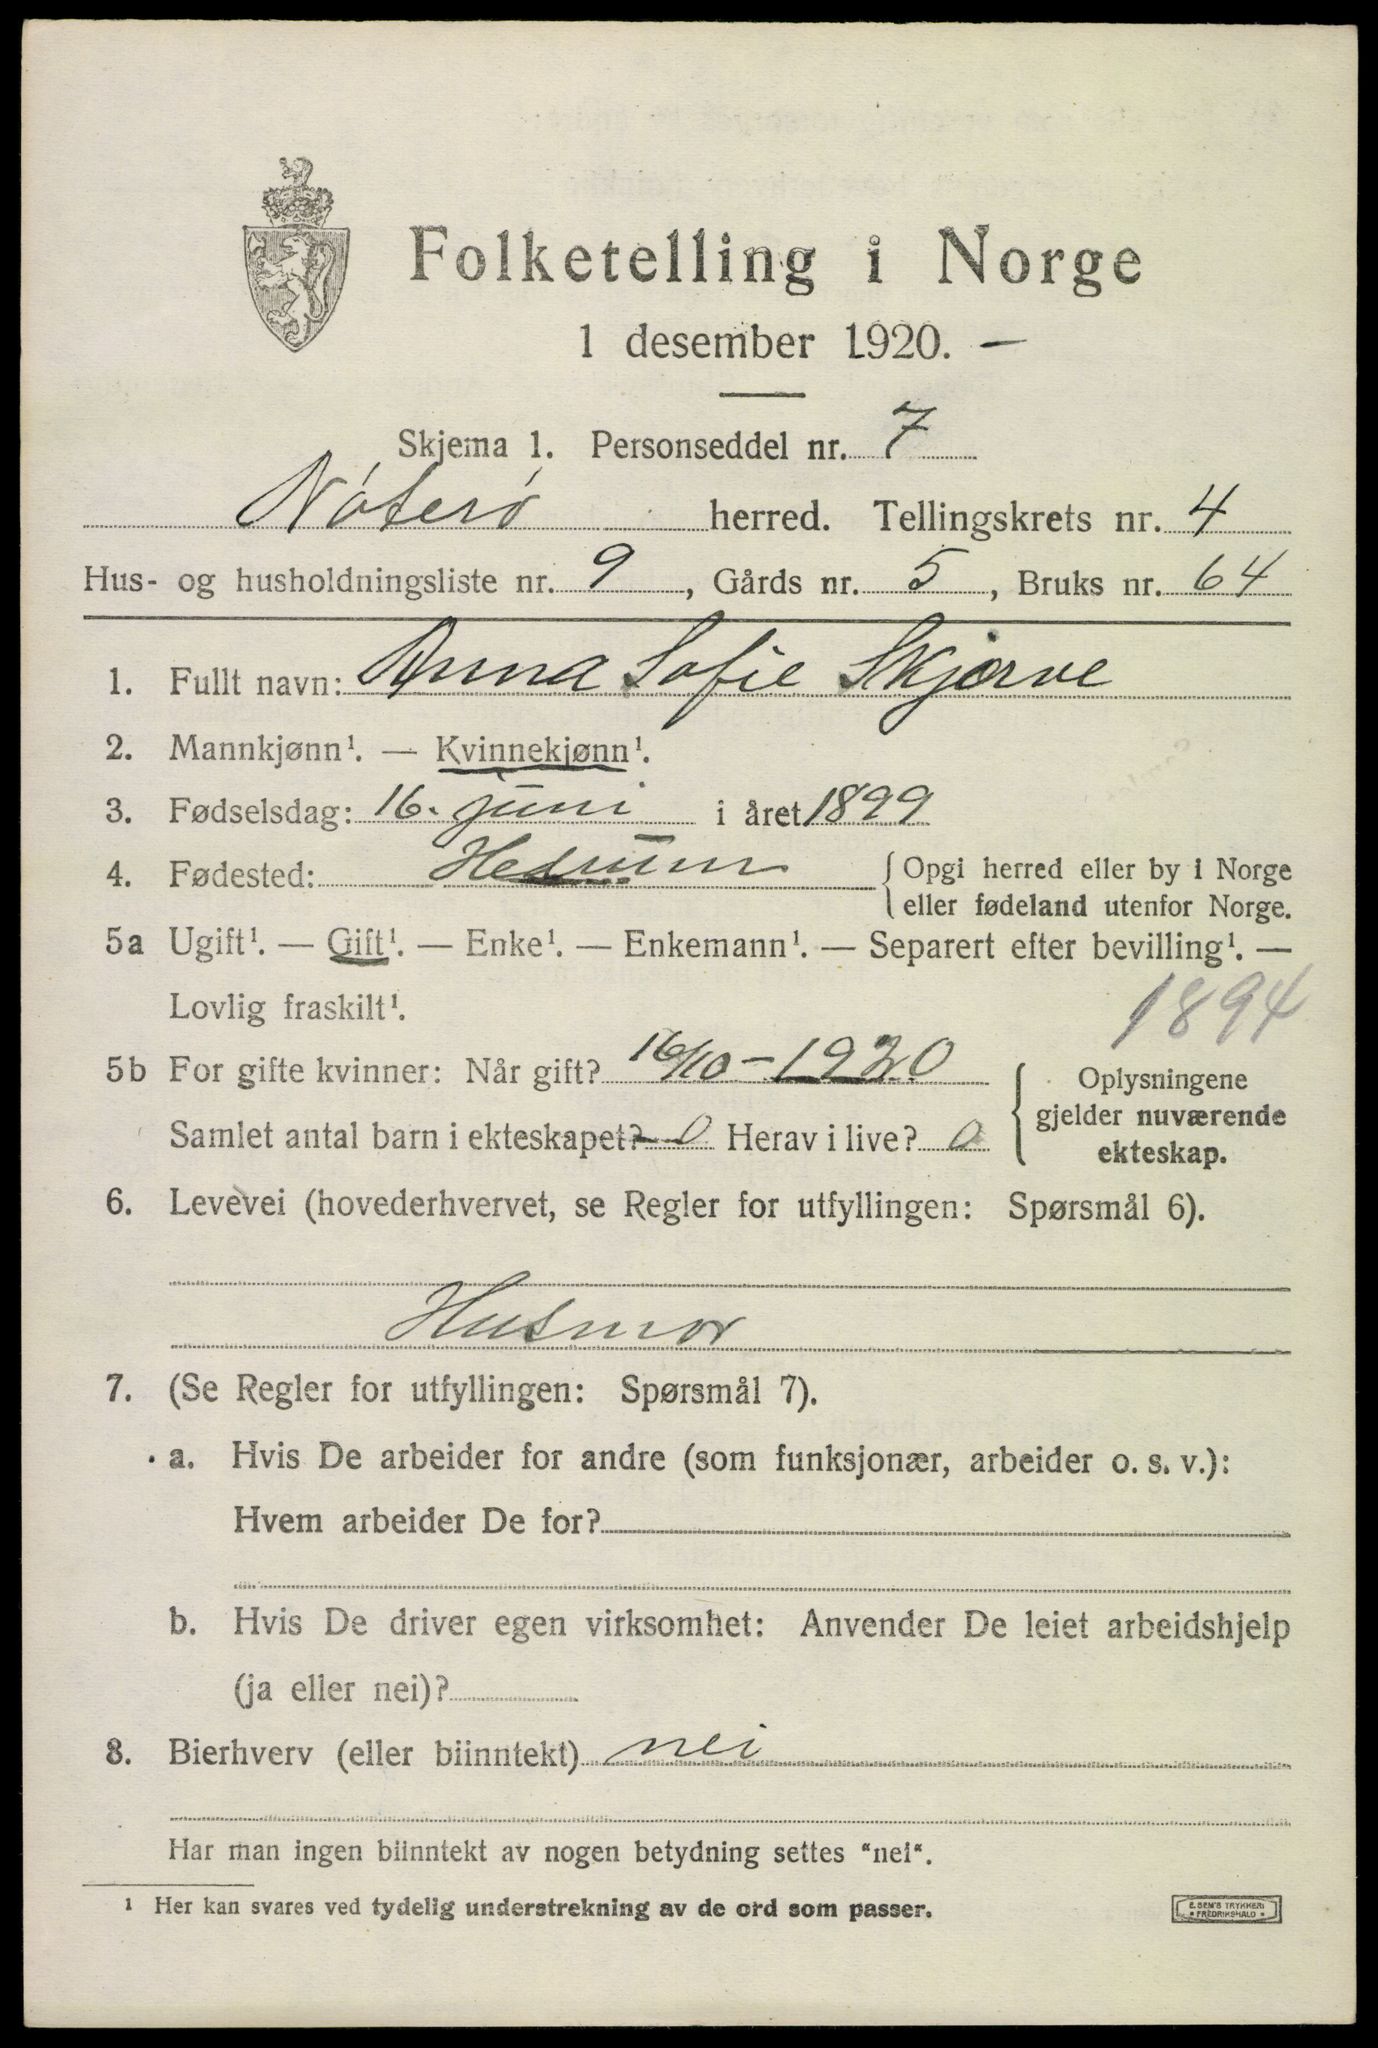 Folketelling i Norge
1 desember 1920. —
Skjema 1. Personseddel nr. 7
Nøterø herred. Tellingskrets nr. 4
Hus- og husholdningsliste nr. 9, Gårds nr. 5, Bruks nr. 64
1. Fullt navn: Anna Sofie Skjærve
2. Mannkjønn¹. — Kvinnekjønn¹.
3. Fødselsdag: 16. juni i året 1899
4. Fødested: Hedrum { Opgi herred eller by i Norge
eller fødeland utenfor Norge.
5a Ugift¹. — Gift¹. — Enke¹. — Enkemann¹. — Separert efter bevilling¹. —
Lovlig fraskilt¹.
1894
5b For gifte kvinner: Når gift? 16/10 - 1920
Samlet antal barn i ekteskapet? 0 Herav i live? 0
Oplysningene
gjelder nuværende
ekteskap.
6. Levevei (hovederhvervet, se Regler for utfyllingen: Spørsmål 6).
Husmor
7. (Se Regler for utfyllingen: Spørsmål 7).
a. Hvis De arbeider for andre (som funksjonær, arbeider o. s. v.):
Hvem arbeider De for?
b. Hvis De driver egen virksomhet: Anvender De leiet arbeidshjelp
(ja eller nei)?
8. Bierhverv (eller biinntekt) nei
Har man ingen biinntekt av nogen betydning settes "nei".
¹ Her kan svares ved tydelig understrekning av de ord som passer.
E. SEM'S TRYKKERI
* FREDRIKSHALD *